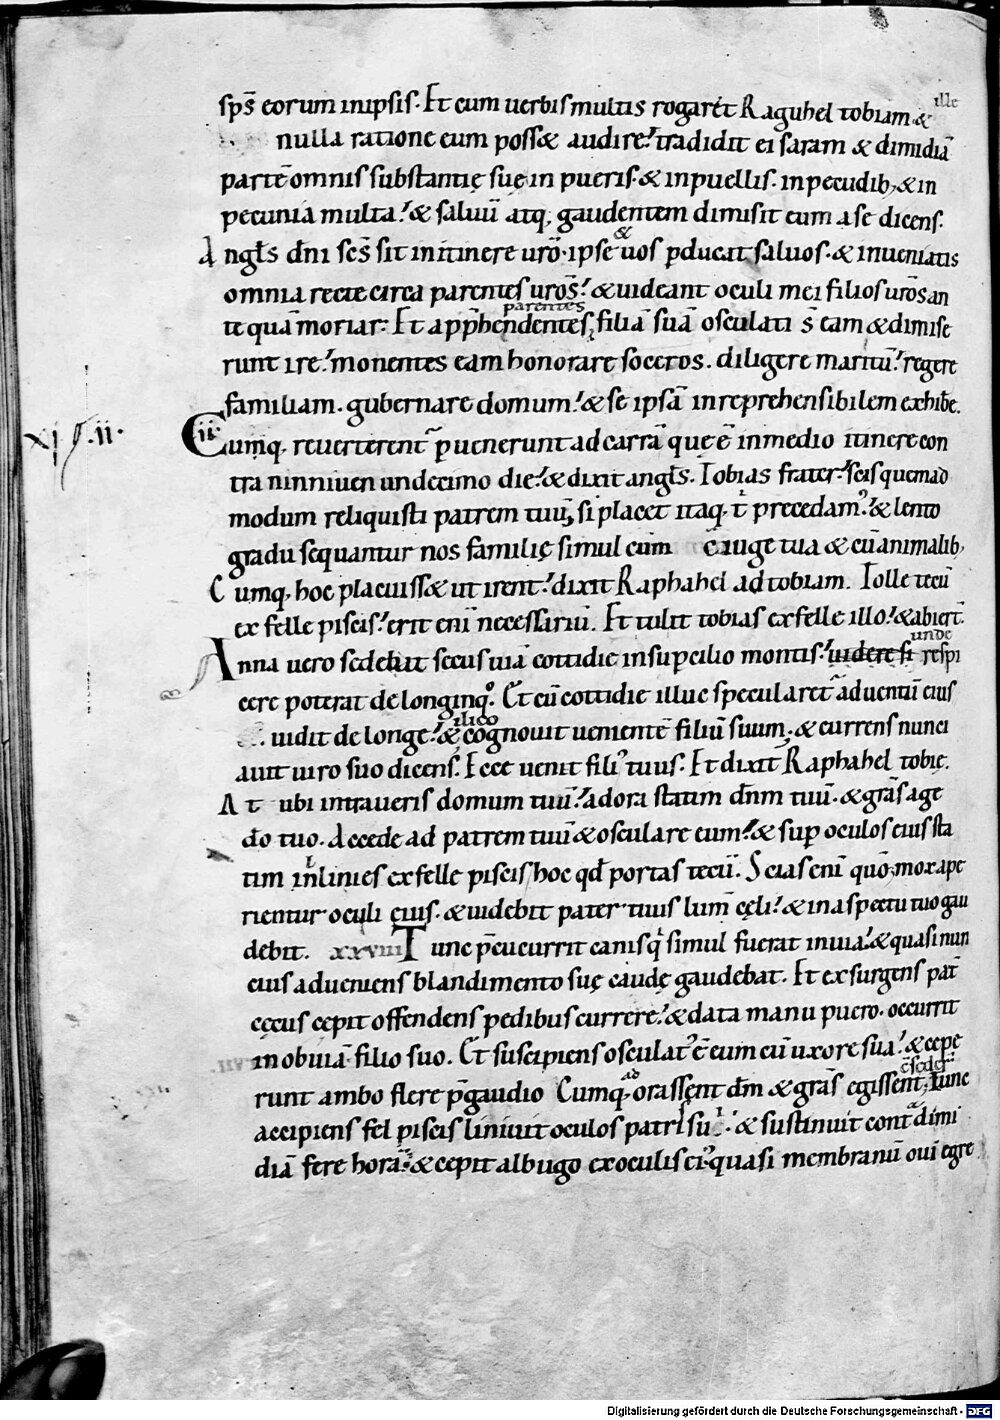 ille
sp̄s eorum in ipsis. Et cum uerbis multis rogar&et Raguhel tobiam &
nulla ratione eum poss& audire. tradidit ei saram & dimidiā
partē omnis substantię suę in pueris. & in puellis. in pecudib; & in
pecunia multa. & saluū atq; gaudentem dimisit eum a se dicens.
Angl̄s dn̄i scs̄ sit in itinere uro᷒. ipse uos p̱ducat saluos. & inueniatis
&
omnia recte circa parentes uro᷒s. & uideant oculi mei filios uro᷒s an
parentes
te quā moriar. Et app̄hendentes filiā suā osculati s̄ eam & dimise
runt ire. monentes eam honorare soceros. diligere maritū. regere
familiam. gubernare domum. & se ipsā inreprehensibilem exhibe̅.
xi .ii. Cumq; reuerterent᷑ p̱uenerunt ad carrā que ē in medio itinere con
tra ninniuen undecimo die. & dixit angl̄s. Tobias frater. scis quemad
modum reliquisti patrem tuū, si placet itaq. p̱cedam᷒. & lento
gradu sequantur nos familię simul cum c̄iuge tua & cū animalib;
Cumq; hoc placuiss& ut irent. dixit Raphahel ad tobiam. Tolle tecū
ex felle piscis. erit enī necessariū. Et tulit tobias ex felle illo. & abier̄t
unde
Anna uero sedebat secus uiā cottidie in sup̱cilio montis. uidere si respi
cere poterat de longinq°. Et cū cottidie illuc specularet᷑ aduentū eius
ilico
uidit de longe. & cognouit uenientē filiū suum. & currens nunci
auit uiro suo dicens. Ecce uenit fili᷒ tuus. Et dixit Raphahel tobię.
At ubi intraueris domum tuā. adora statim dn̄m tuū. & grās age
dō tuo. Accede ad patrem tuū & osculare eum. & sup̱ oculos eius sta
tim inlinies ex felle piscis hoc qd̄ portas tecū. Scias enī quō mox ape
rientur oculi eius. & uidebit pater tuus lum̄ cęli. & in aspectu tuo gau
debit. xxviii Tunc p̄cucurrit canis q̍ simul fuerat in uia. & quasi nun
cius adueniens blandimento suę caudę gaudebat. Et exsurgens pat̄
cęcus cepit offendens pedibus currere. & data manu puero. occurrit
in obuiā filio suo. Et suscipiens osculat᷒ ē eum cū uxore sua. & cepe
runt ambo flere p̄ gaudio Cumq; orassent dm̄ & grās egissent, tunc
accipiens fel piscis liniuit oculos patri su. & sustinuit cont᷑ dimi
diā fere horā. & cepit albugo ex oculis ei᷒ quasi membranū oui egre